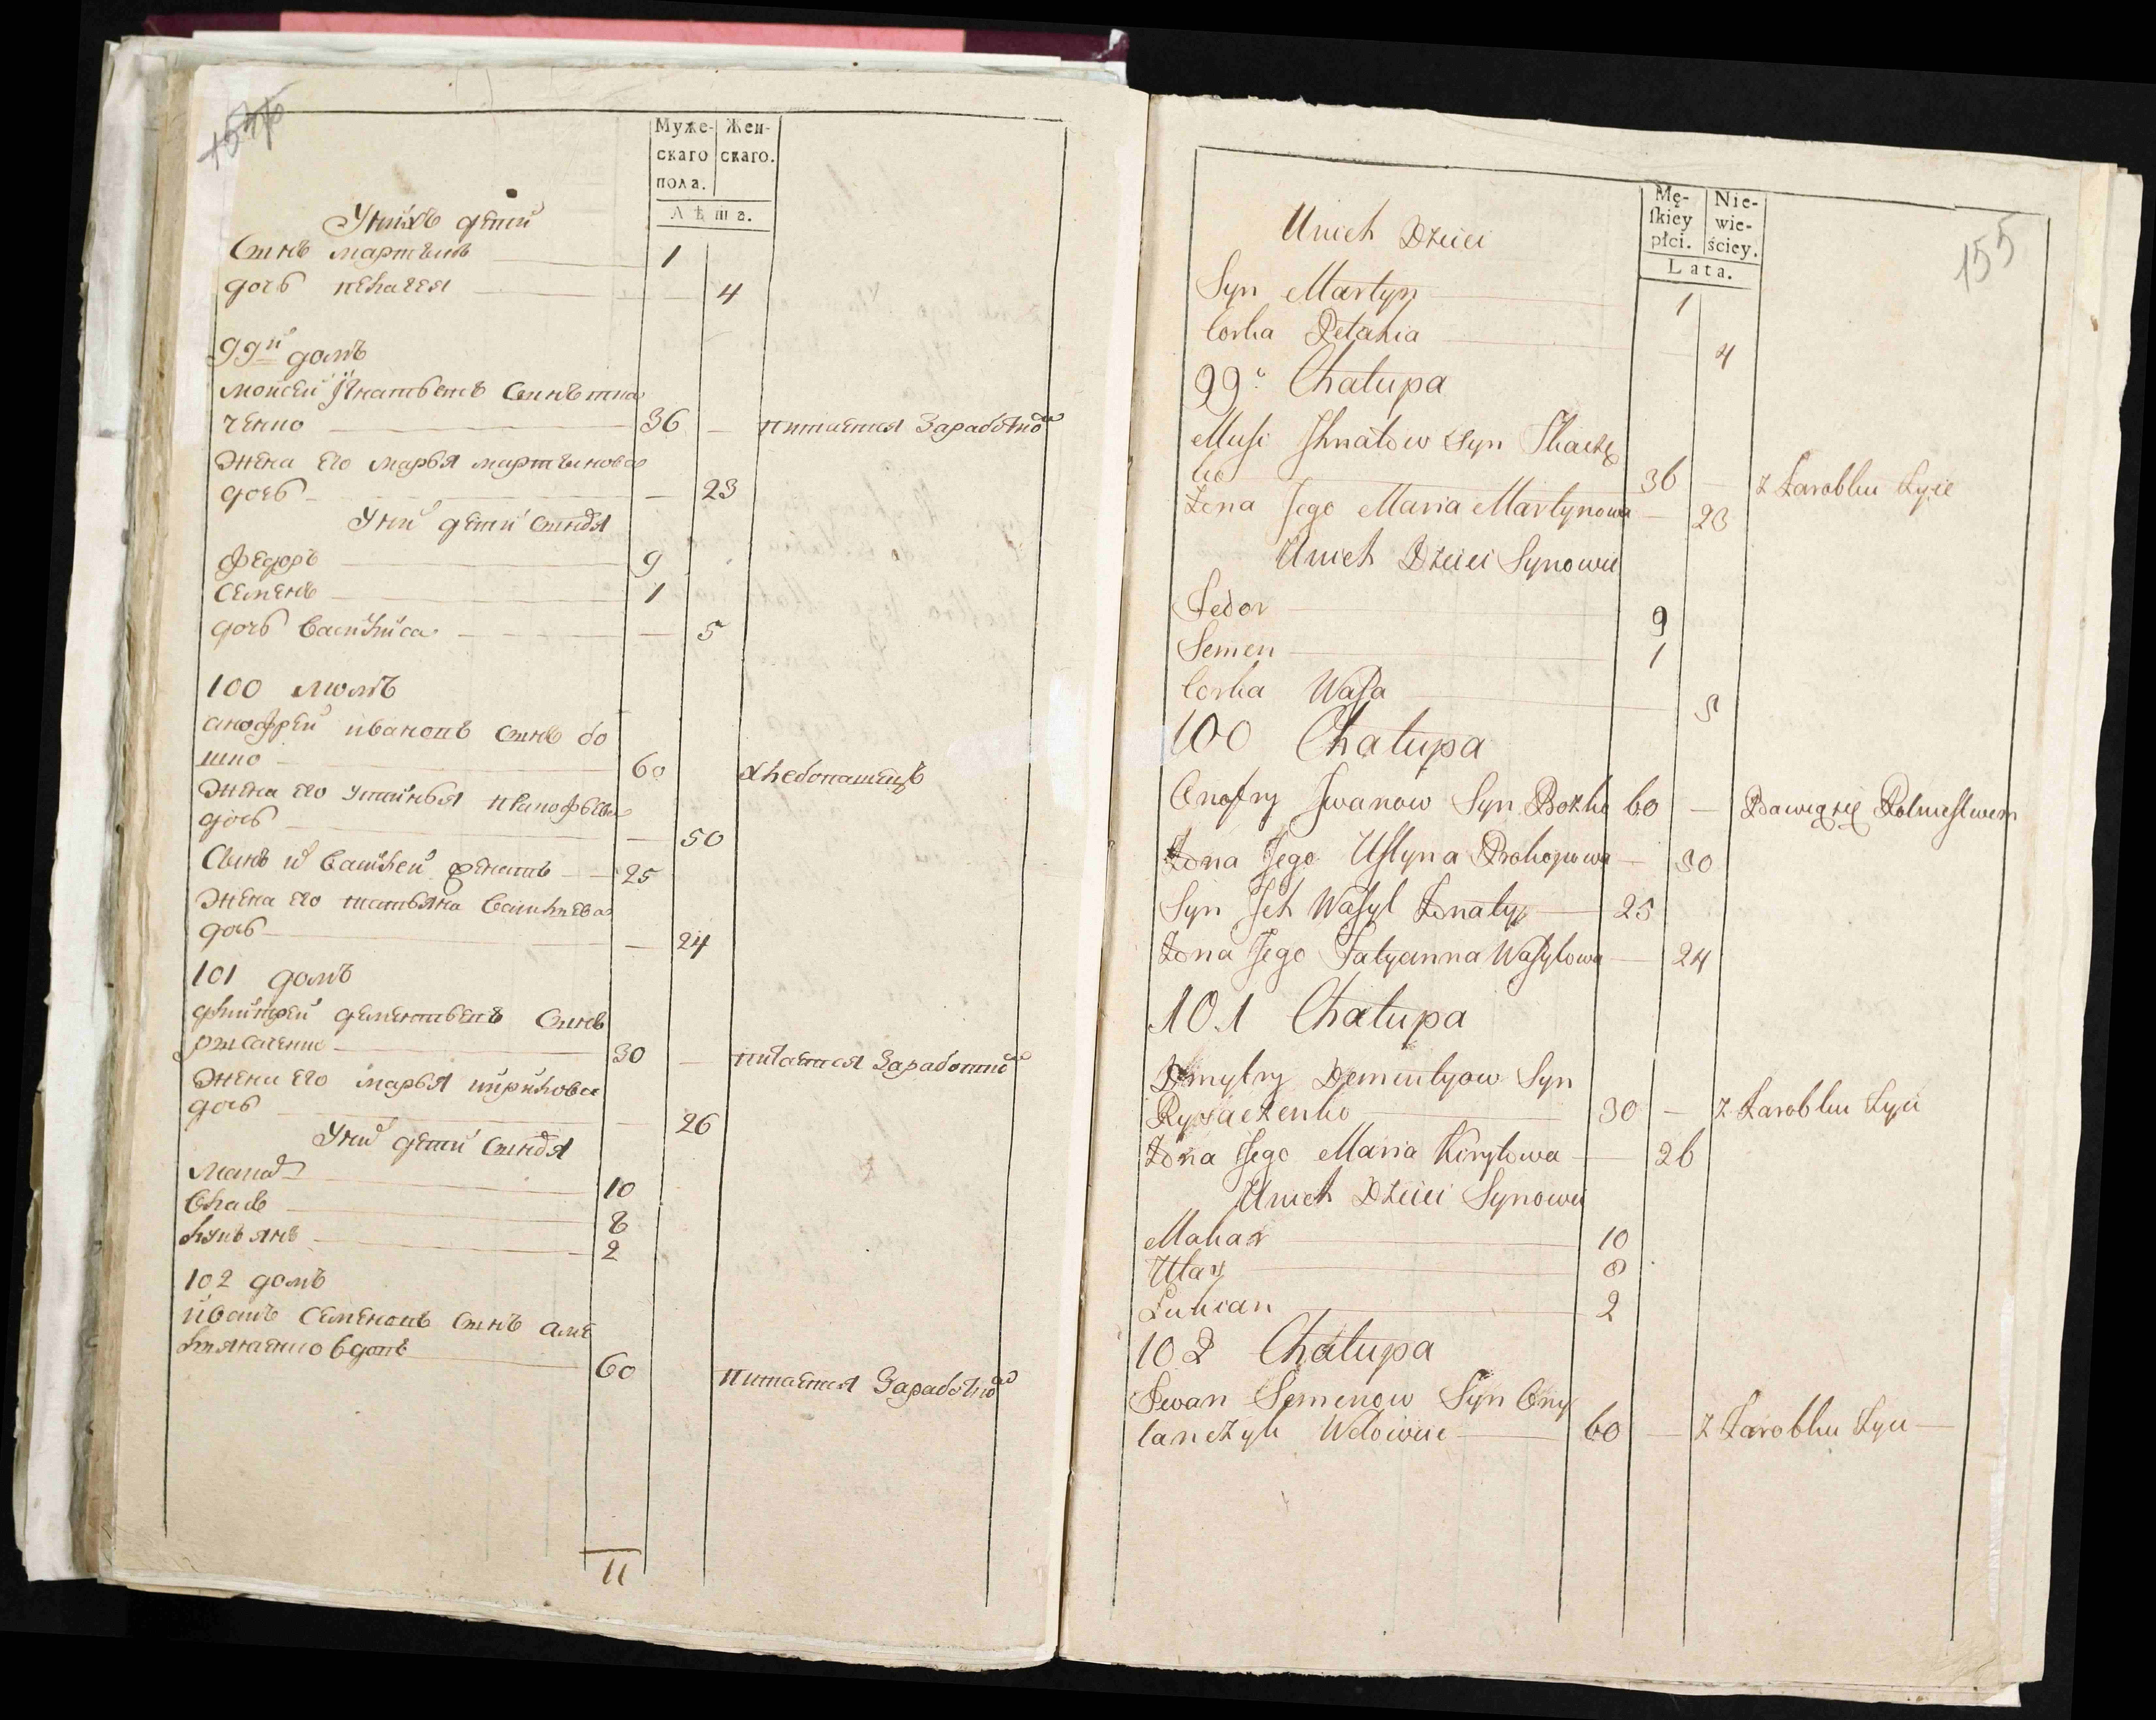 Муже- Жен-
скаго скаго.
пола.
Лѣта.
У нихъ дети
Сынъ мартынъ 1
дочь пелагея 4
99й домъ
мойсей Игнатьевъ Сынъ тка
ченко 36 — питается Заработкой
Жена его марья мартынова
дочь — 23
У них дети Сыновья
федоръ 9
Семенъ 1
дочь Василиса — 5
100 домъ
анофрей ивановъ Сынъ бо
шко 60 хлебопашецъ
Жена его устинья
дочь — 50
Сынъ их Василей 25
Жена его татьяна Васильева
дочь — 24
101 домъ
дмитрей дементьевъ Сынъ
рысаченко 30 — питается Заработкой
Жена его марья кирилова
дочь — 26
У них дети Сыновья
Макаръ 10
Власъ 8
лукьянъ 2
102 домъ
иванъ Семеновъ Сынъ
вдовъ 60 питается Заработкой
11
Mę- Nie-
ſkiey wie-
płci. ściey.
Lata.
155
U nich Dzieci
Syn Martyn 1
Corka Pelahia 4
99. Chałupa
Musi Ihnatow Syn Tkacze
ko 36 — z Zarobku Zyie
Zona Jego Maria Martynowa — 23
U nich Dzieci Synowie
Fedor 9
Semen 1
Corka Waſa 5
100 Chałupa
Onofry Jwanow Syn Bozko 60 — Bawią się Rolnictwem
Zona Jego Uſtyna Prokopowa — 50
Syn Jch Waſyl Zonaty 25
Zona Jego Tatyanna Waſylowa — 24
101 Chałupa
Dmytry Dementyow Syn
Rysaczenko 30 — z Zarobku Zyie
Zona Jego Maria Kiryłowa — 26
U nich Dzieci Synowie
Makar 10
Ułas 8
Lukian 2
102 Chałupa
Iwan Semenow Syn Omy
lanczyk Wdowiec 60 — z Zarobku Zyie